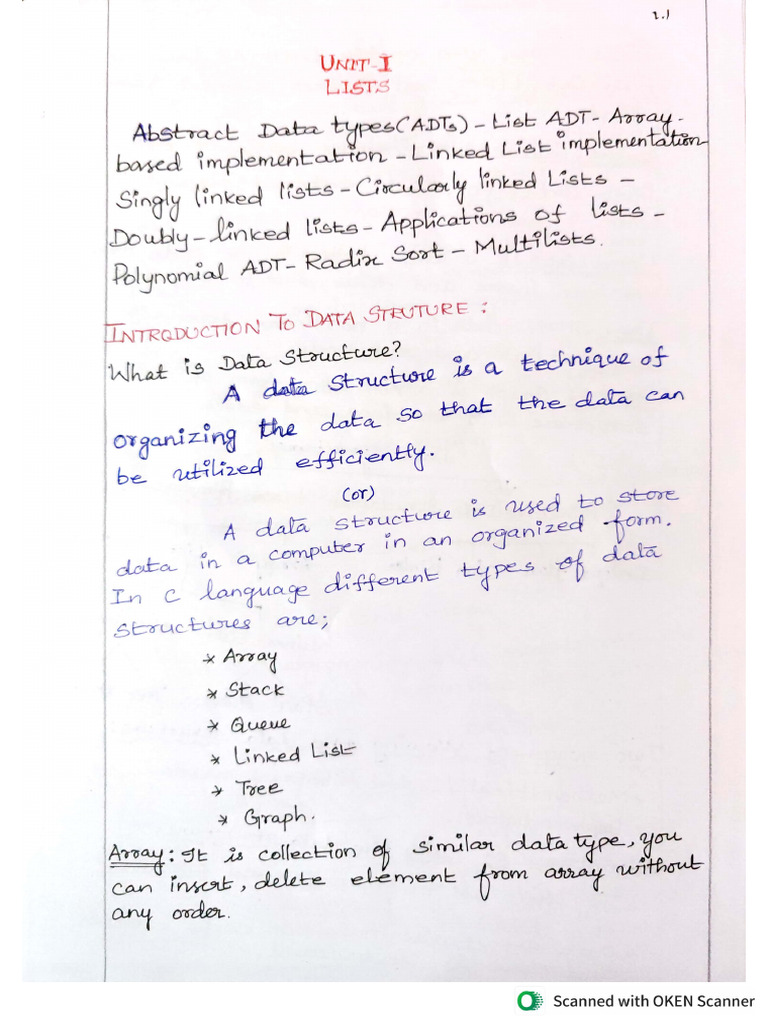 1.1
UNIT-I
LISTS
Abstract Data types(ADTs) - List ADT - Array-
based implementation - Linked List implementation
Singly linked lists - Circularly linked Lists -
Doubly-linked lists - Applications of lists -
Polynomial ADT - Radix Sort - Multilists.
INTRODUCTION TO DATA STRUTURE :
What is Data Structure?
A data structure is a technique of
organizing the data so that the data can
be utilized efficiently.
(or)
A data structure is used to store
data in a computer in an organized form.
In C language different types of data
structures are;
* Array
* Stack
* Queue
* Linked List
* Tree
* Graph.
Array: It is collection of similar data type, you
can insert, delete element from array without
any order.
Scanned with OKEN Scanner